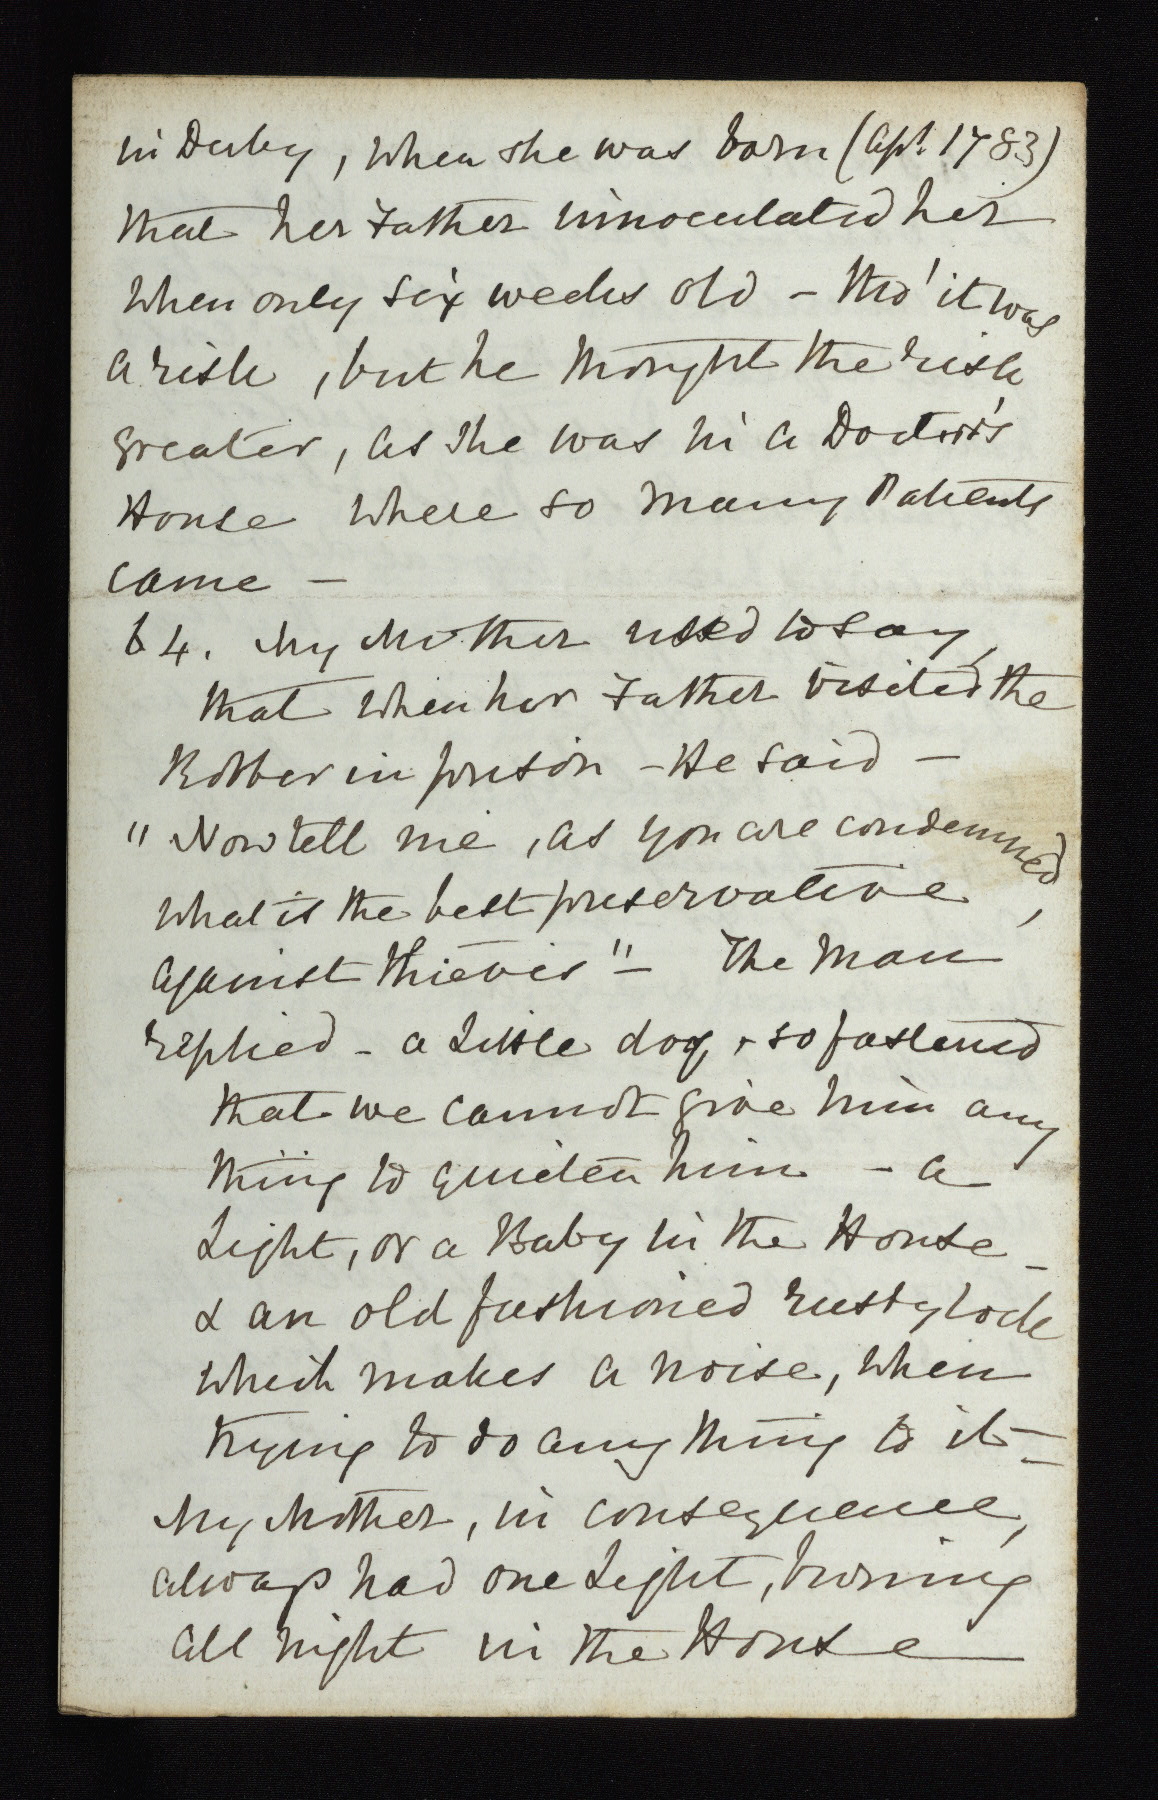 in Derby, when she was born (Apl. 1783)
that her Father innoculated her
when only six weeks old – tho' it was
a risk, but he thought the risk
greater, as she was in a Doctor's
House where so many Patients
came –
64. My Mother used to say,
that when her Father visited the
Robber in prison – He said –
"Now tell me, as you are condemned,
what is the best preservative,
against thieves" – The Man
replied – a little dog, & so fastened
that we cannot give him any
thing to quieten him – a
Light, or a Baby in the House –
& an old fashioned rusty lock
which makes a noise, when
trying to do any thing to it –
My Mother, in consequence,
always had one Light, burning
all night in the House